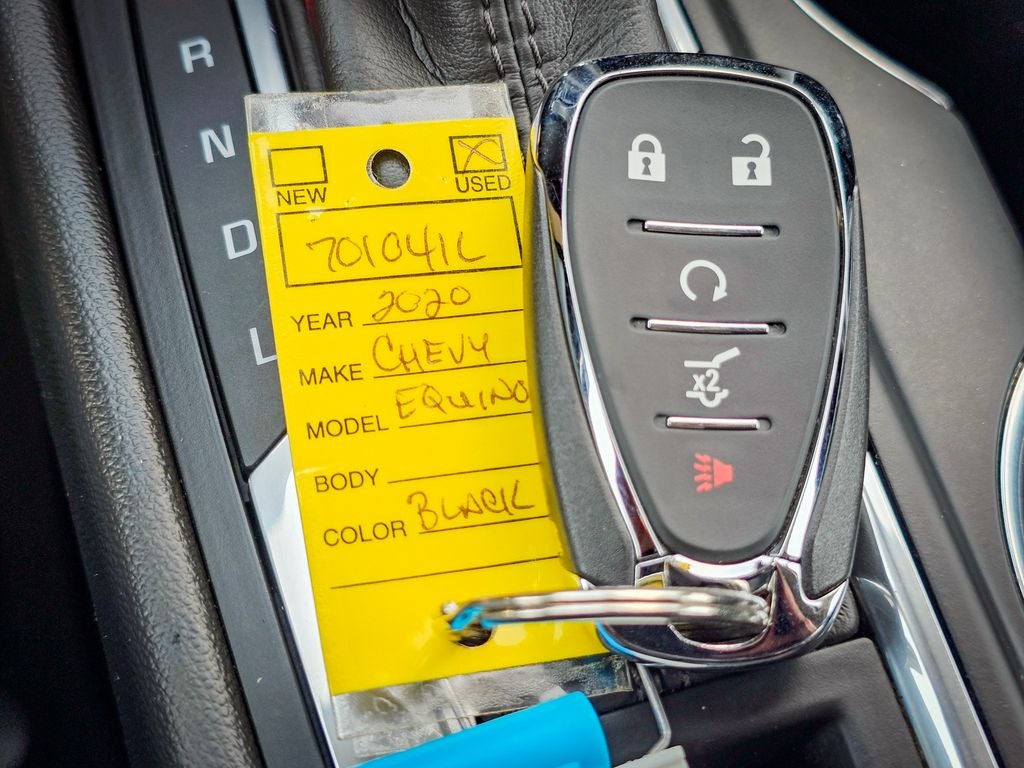 R
N
D
L
NEW
USED
701041L
YEAR 2020
MAKE CHEVY
MODEL EQUINO
BODY
COLOR BLACK
x2